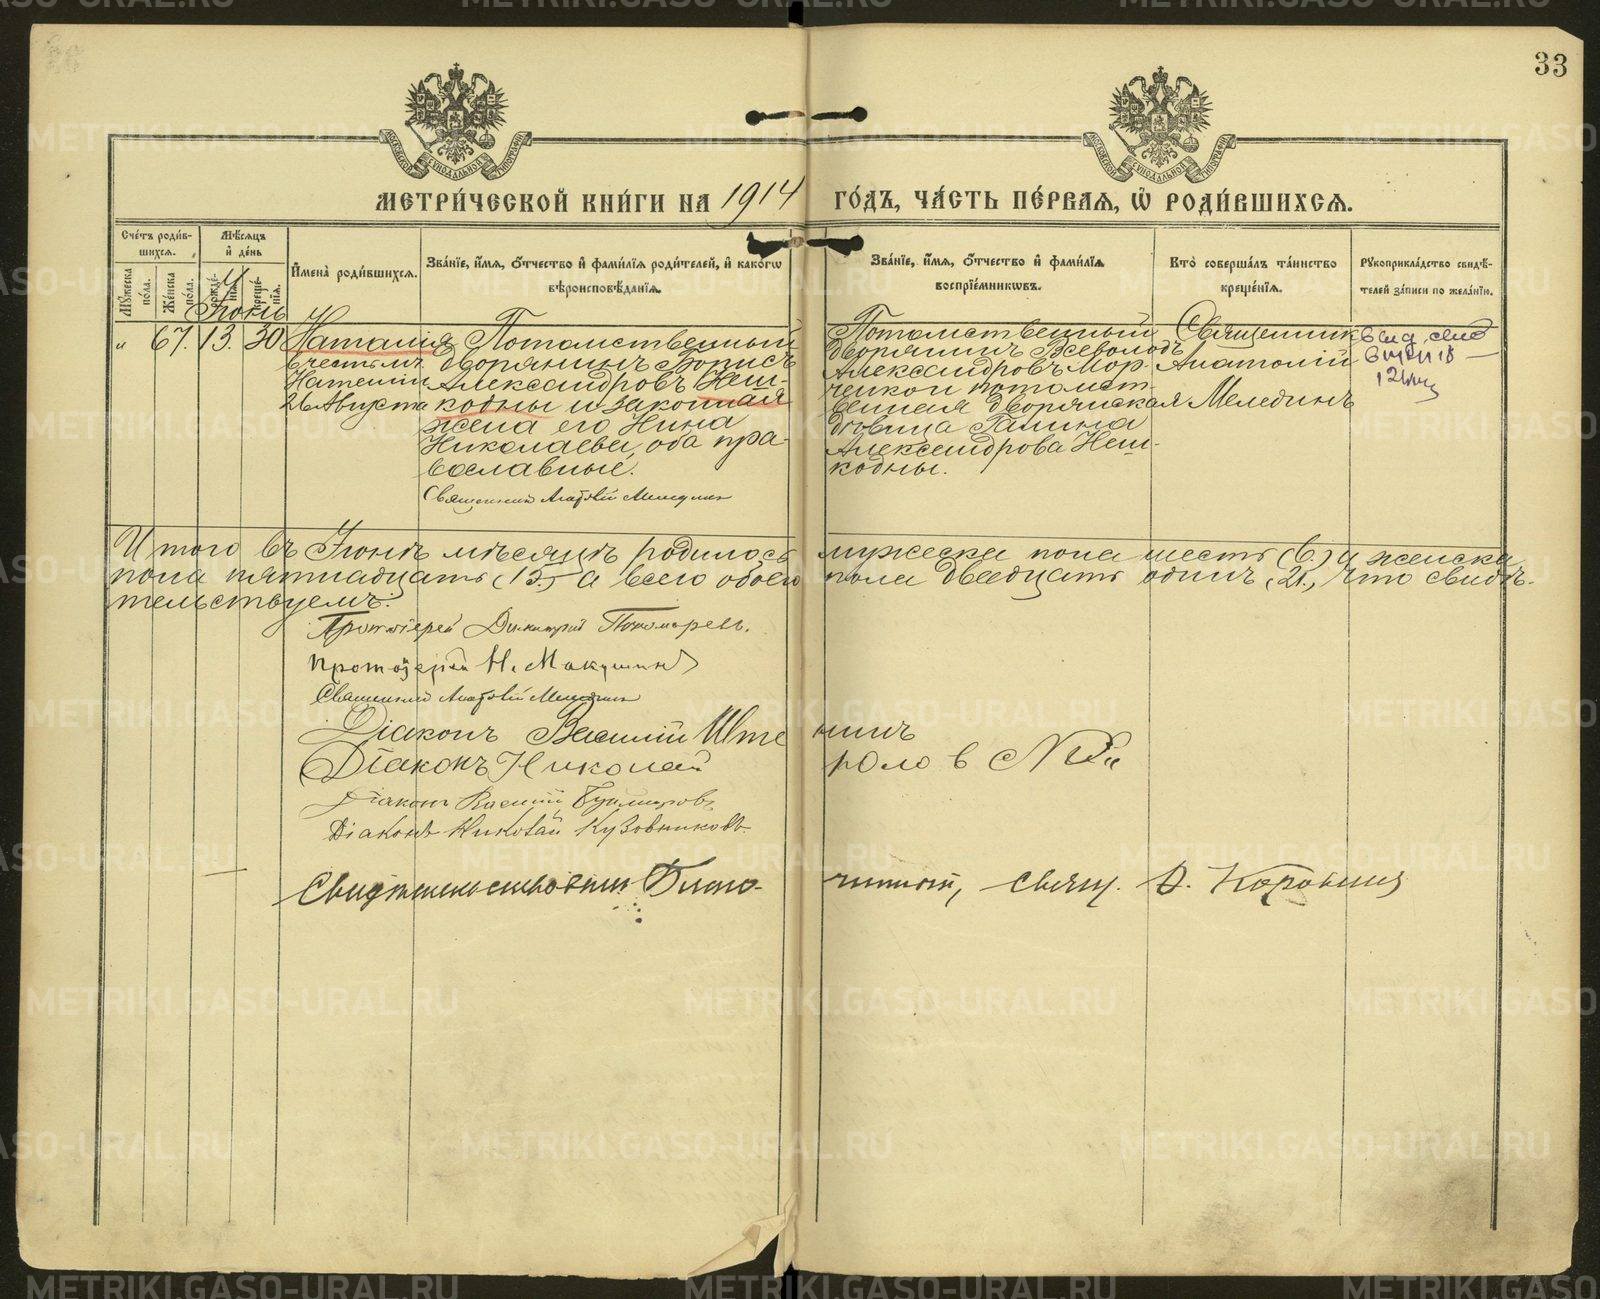 33
МОСКОВСКОЙ СѴНОДАЛЬНОЙ ТИПОГРАФІИ
МОСКОВСКОЙ СѴНОДАЛЬНОЙ ТИПОГРАФІИ
МЕТРИ́ЧЕСКОЙ КНИ́ГИ НА 1914 ГО́ДЪ, ЧА́СТЬ ПЕ́РВАЯ, Ѡ РОДИ́ВШИХСЯ.
Сче́тъ роди́в-
шихся.
Мꙋ́жеска
по́ла.
Же́нска
по́ла.
Мѣ́сяцъ
и҆ де́нь
рожде́-
нїя.
креще́-
нїя.
Іюнь
И҆мена̀ роди́вшихся.
Зва́нїе, и҆́мя, ѻ҆́тчество и҆ фами́лїѧ роди́телей, и҆ како́гѡ
вѣроисповѣ́данїѧ.
Зва́нїе, и҆́мя, ѻ҆́тчество и҆ фами́лїѧ
воспрїе́мникѡвъ.
Кто̀ соверша́лъ та́инство
креще́нїѧ.
Рꙋкоприкла́дство свидѣ́-
телей за́писи по жела́нїю.
"
67.
13.
30
Наталія
въ честь мч.
Наталіи
26 Августа
Потомственный
дворянинъ Борисъ
Александровъ Неш-
кодны и законная
жена его Нина
Николаева, оба пра-
вославные.
Священникъ Анатолій Мелединъ
Потомственный
дворянинъ Всеволодъ
Александровъ Мор-
ченкои потомст-
венная дворянская
дѣвица Галина
Александрова Неш-
кодны.
Священникъ
Анатолій
Мелединъ
Итого въ Іюнѣ мѣсяцѣ родилось мужеска пола шесть (6.) и женска
пола пятнадцать (15.) а всего обоего пола двадцать одинъ (21.), что свидѣ-
тельствуемъ:
Протоіерей Димитрій Пономаревъ.
Протоіерей Н. Макушинъ
Священникъ Анатолій Мелединъ
Діаконъ Василій
Діаконъ Николай
Діаконъ Василій
Діаконъ Николай Кузовниковъ
Свидѣтельствовалъ Благо-
чинный, свящ. Коровинъ
METRIKI.GASO-URAL.RU